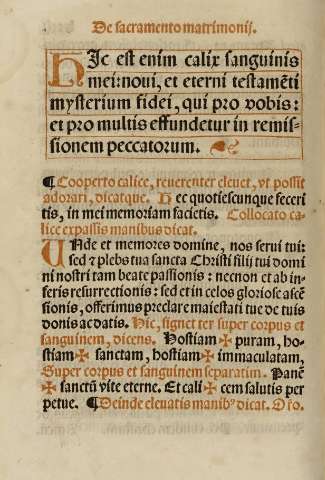 De sacramento matrimonij.
HJc est enim calix sanguinis
mei: noui, et eterni testamẽti
mysterium fidei, qui pro vobis:
et pro multis effundetur in remis-
sionem peccatorum.
¶ Cooperto calice, reuerenter eleuet, vt possit
adorari, dicatque. Hec quotiescunque feceri
tis, in mei memoriam facietis. Collocato ca-
lice expassis manibus dicat.
UNde et memores domine, nos serui tui:
sed ⁊ plebs tua sancta Christi filij tui domi
ni nostri tam beate passionis: necnon et ab in-
feris resurrectionis: sed et in celos gloriose ascẽ
sionis, offerimus preclare maiestati tue de tuis
donis ac datis. Hic, signet ter super corpus et
sanguinem, dicens. Hostiam ✠ puram, ho-
stiam ✠ sanctam, hostiam ✠ immaculatam,
Super corpus et sanguinem separatim. Panẽ
✠ sanctũ vite eterne. Et cali ✠ cem salutis per
petue. ¶ Deinde eleuatis manibꝰ dicat. Oro.